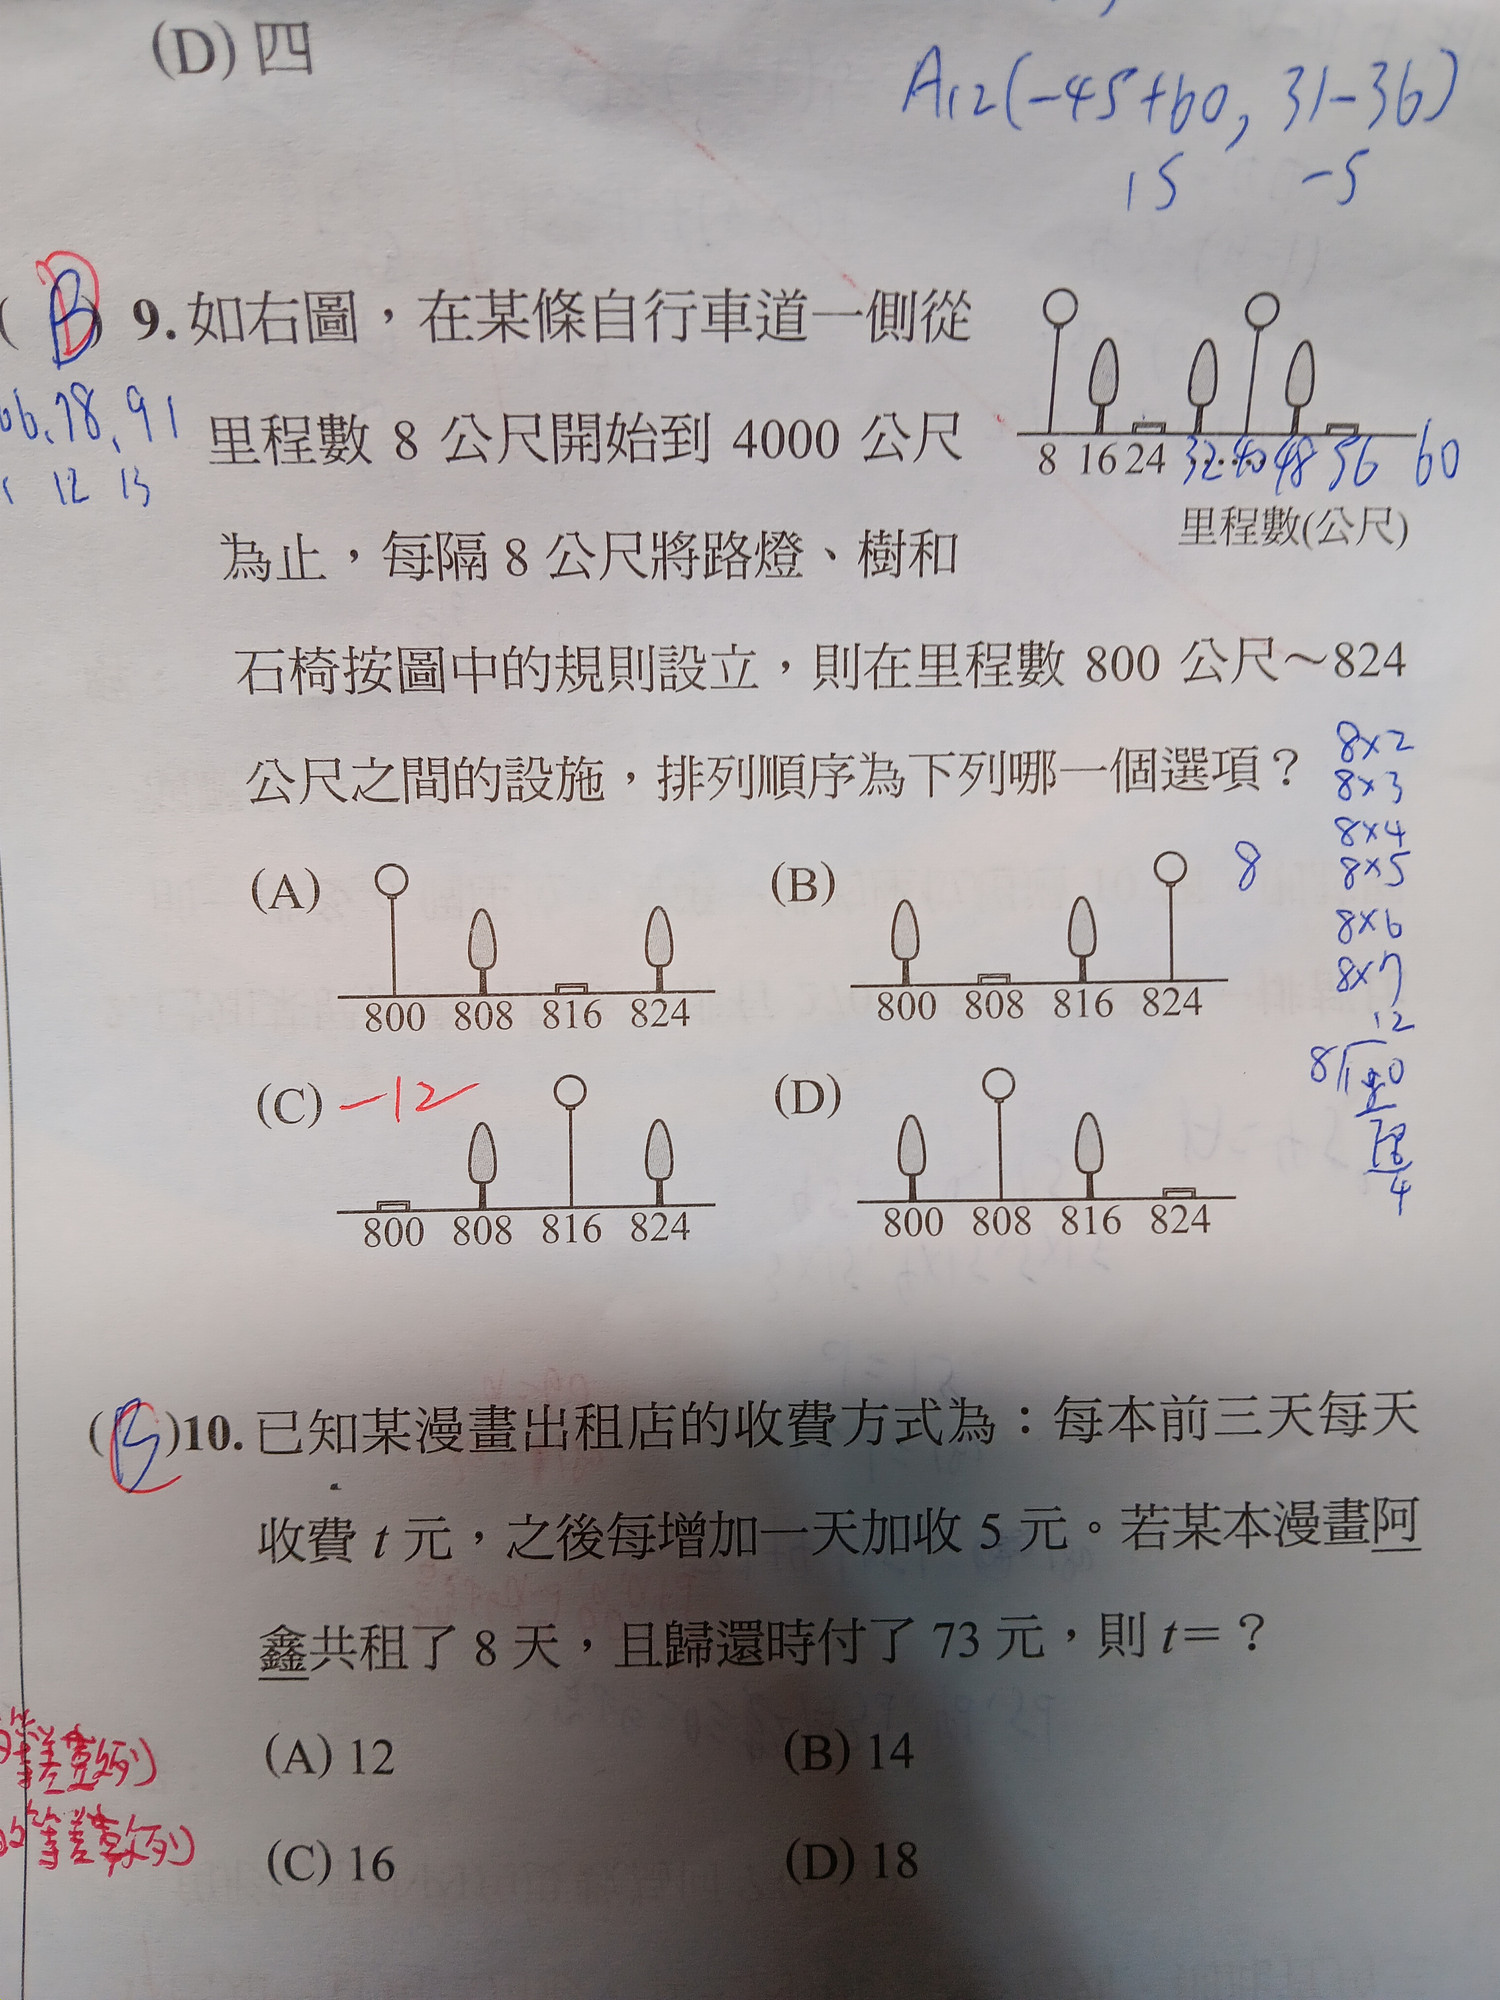 (D) 四
A12(-45+60, 31-36)
15 -5
(B) 9. 如右圖，在某條自行車道一側從
里程數 8 公尺開始到 4000 公尺
為止，每隔 8 公尺將路燈、樹和
石椅按圖中的規則設立，則在里程數 800 公尺～824
公尺之間的設施，排列順序為下列哪一個選項？
78, 91
12 13
8 16 24 32 40 48 56 60
里程數(公尺)
8×2
8×3
8×4
8×5
8×6
8×7
12
8
(A)
800 808 816 824
(B)
800 808 816 824
8
(C) -12
800 808 816 824
(D)
800 808 816 824
4
( )10. 已知某漫畫出租店的收費方式為：每本前三天每天
收費 t 元，之後每增加一天加收 5 元。若某本漫畫阿
鑫共租了 8 天，且歸還時付了 73 元，則 t=？
(A) 12 (B) 14
(C) 16 (D) 18
等差數列)
的等差數列)